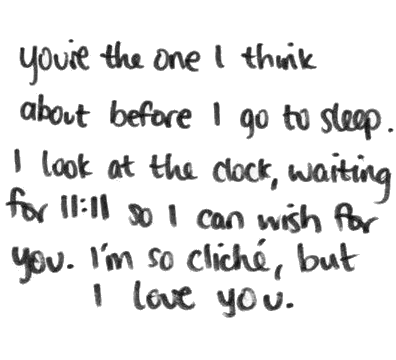 you're the one I think
about before I go to sleep.
I look at the clock, waiting
for 11:11 so I can wish for
you. I'm so cliché, but
I love you.